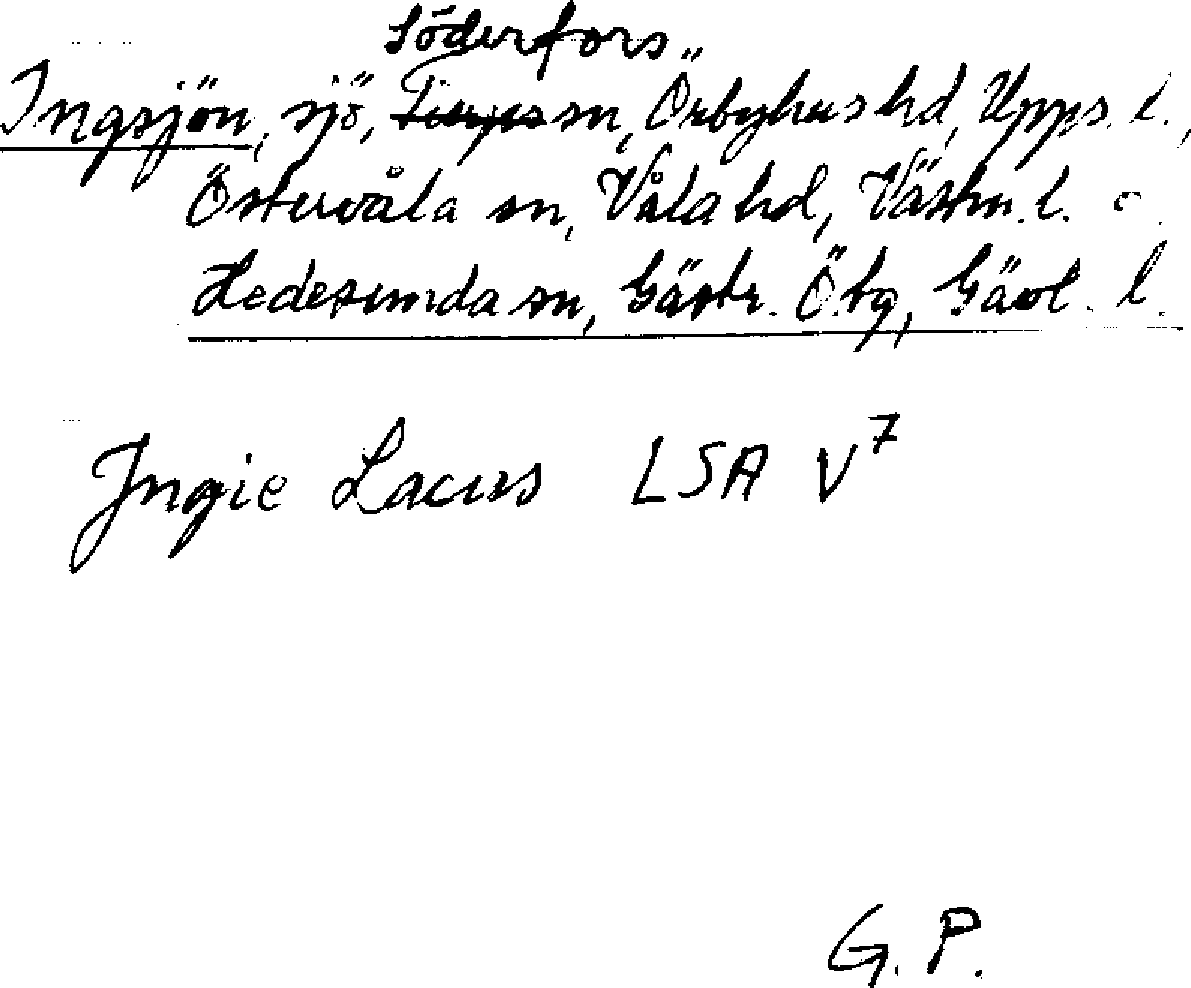 Söderfors
Ingsjön, sjö, Tierps sn, Örbyhus hd, Upps. l.,
Östervåla sn, Våla hd, Västm. l. o.
Hedesunda sn, Gästr. Ö. tg, Gävl. l.
Jngie Lacus LSA V7
G. P.